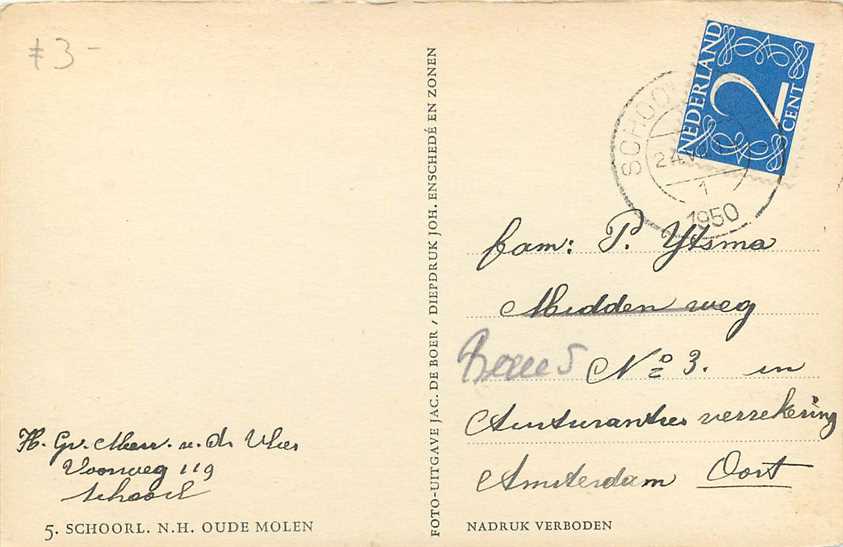 3-
NEDERLAND
2
CENT
SCHOO
1
1950
fam: P. Ytsma
Middenweg
No 3. in
verzekering
Amsterdam Oost
H. Gr. v. d. Vlies
Voorweg 119
Schoorl
5. SCHOORL. N.H. OUDE MOLEN
FOTO-UITGAVE JAC. DE BOER / DIEPDRUK JOH. ENSCHEDÉ EN ZONEN
NADRUK VERBODEN